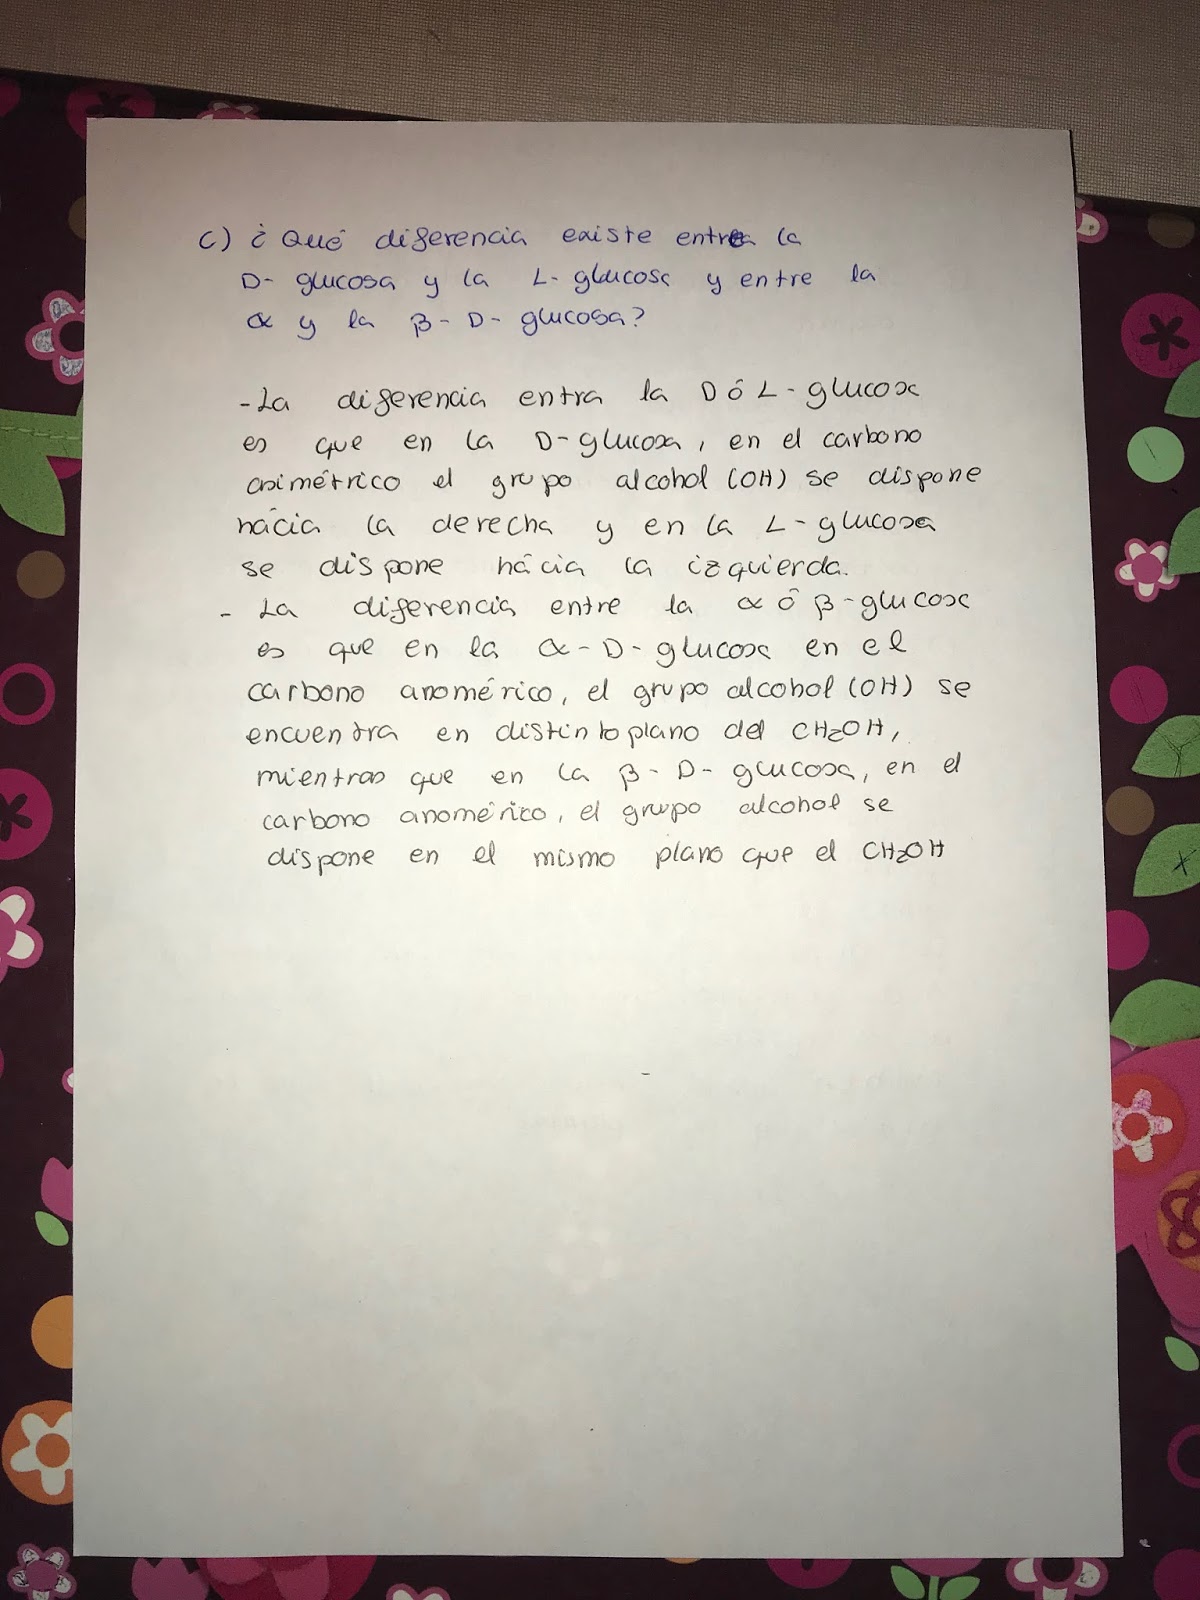 c) ¿Qué diferencia existe entre la
D- glucosa y la L- glucosa y entre la
α y la β - D - glucosa?
- La diferencia entra la D ó L - glucosa
es que en la D-glucosa, en el carbono
asimétrico el grupo alcohol (OH) se dispone
hácia la derecha y en la L - glucosa
se dispone hácia la izquierda.
- La diferencia entre la α ó β-glucosa
es que en la α - D - glucosa en el
carbono anomérico, el grupo alcohol (OH) se
encuentra en distinto plano del CH2OH,
mientras que en la β - D - glucosa, en el
carbono anomérico, el grupo alcohol se
dispone en el mismo plano que el CH2OH